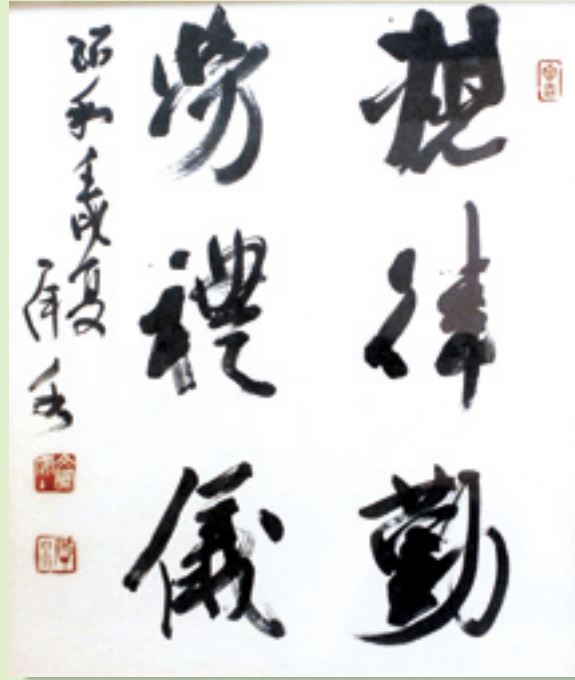 規律勤
勞禮儀
昭和壬戌夏